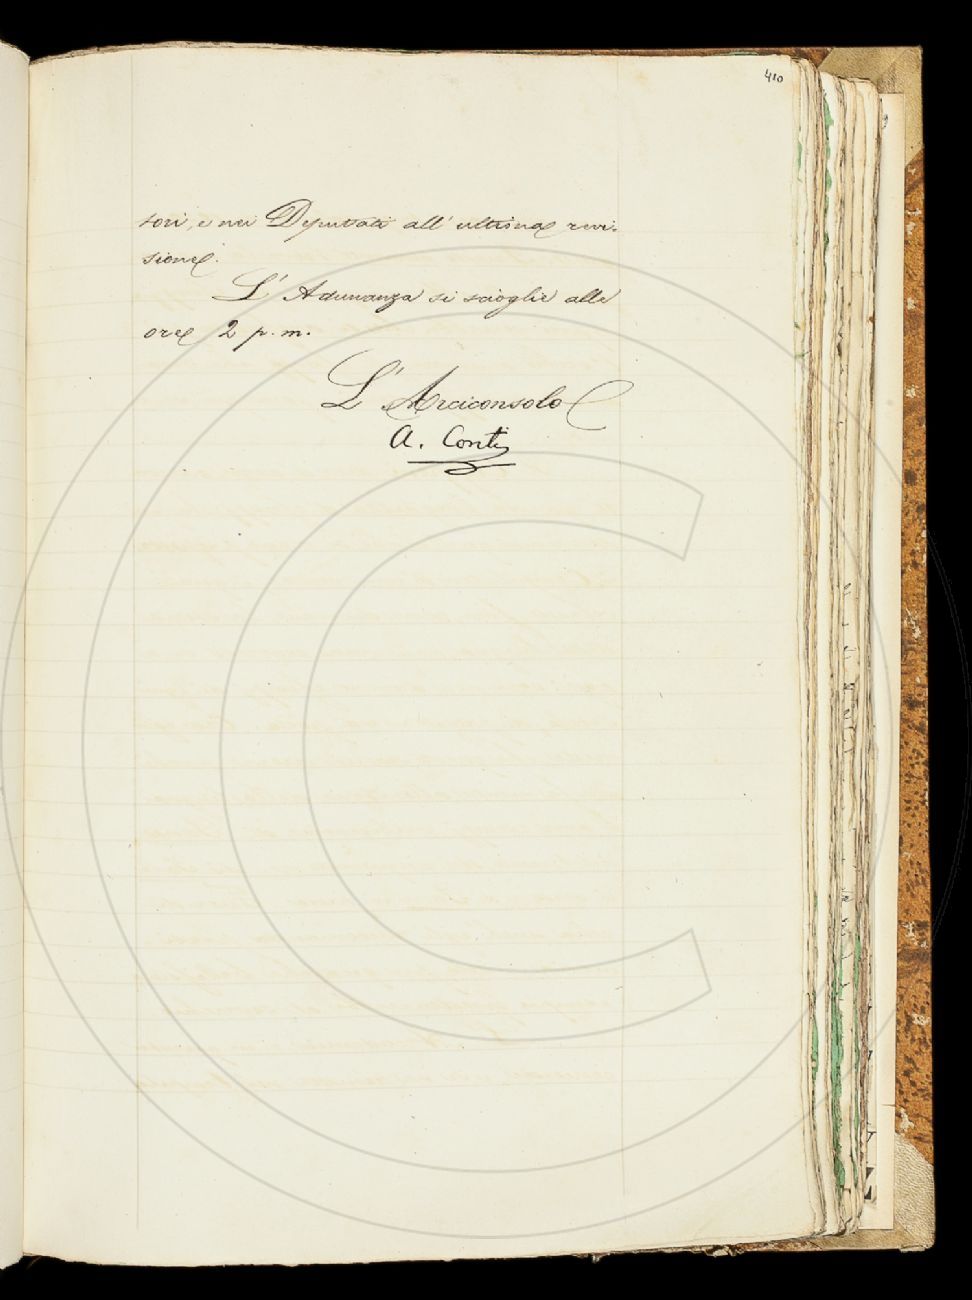 410
sori, e nei Deputati all' ultima revi-
sione.
L' Adunanza si scioglie alle
ore 2 p. m.
L' Arciconsolo
A. Conti